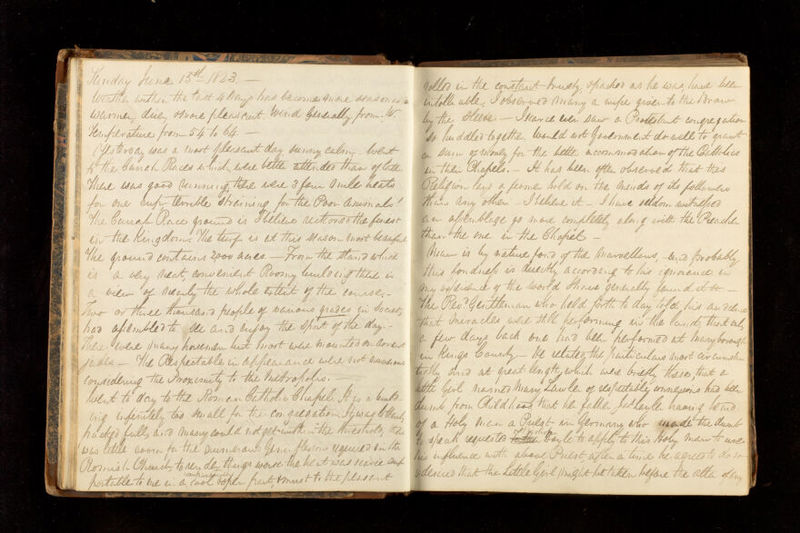 Sunday June 15th 1823 —
Weather within the last 4 days has become more seasonable
warmer, dry, & more pleasant Wind Generally from W
Temperature from 54 to 64 —
Yesterday was a most pleasant day sunny calm. Went
to the Curragh Races which were better attended than of late
There was good Running, there were 3 four mile heats
for one cup, terrible straining for the Poor Animals!
The Curragh Race ground is I believe the finest
in the Kingdom. The turf is at this season most beautiful
The ground contains 2000 acres — From the stand which
is a very neat, convenient Roomy building there is
a view of nearly the whole extent of the course. —
Two or three thousand people of various grades in Society
had assembled to see and enjoy the sport of the day. —
There were many horsemen but most were mounted on
— The Respectable in appearance were not numerous
considering the Proximity to the Metropolis. —
Went to day to the Roman Catholic Chapel. It is a build
ing infinitely too small for the congregation. It was
packed full, and many could not get within the threshold,
was little room for the numerous Genuflexions required in the
Romish Church, to render things worse the heat was
portable to me in a cool & open part, & must to the peasant
rolled in the constant trusty, as he was, have been
intolerable, I observed many a wipe given to the Brow
by the Sleeve. — I never even saw a Protestant congregation
so huddled together would not Government do well to grant
a sum of money for the better accommodation of the Catholics
in their Chapels. — It has been often observed that this
Religion has a firmer hold on the minds of its followers
than any other. I believe it. I have seldom witnessed
an assemblage go more completely along with the Preacher
than the one in the Chapel —
Man is by nature fond of the Marvellous, and probably
this fondness is directly according to his ignorance in
my experience of the world I have generally found it so —
The Revd Gentleman who held forth to day told his audience
that miracles were still performing in the land; that only
a few days back one had been performed at Maryborough
in Kings County — He related the particulars most circumstan
tially and at great length, which were briefly these, that a
little Girl named Mary Lawlor of respectable connexions had been
dumb from Childhood that her father, having heard
of a Holy man a Priest in Germany who made the dumb
to speak requested Doyle to apply to this Holy man to use
his influence with above Priest after a time he agreed to do so
& desired that the Little Girl might be taken before the altar of any